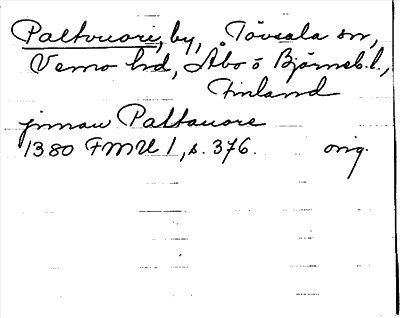 Paltvuori, by, Tövsala sn,
Vemo hd, Åbo o Björneb. l.,
Finland
jnnan Paltauore
1380 FMU 1, s. 376. orig.